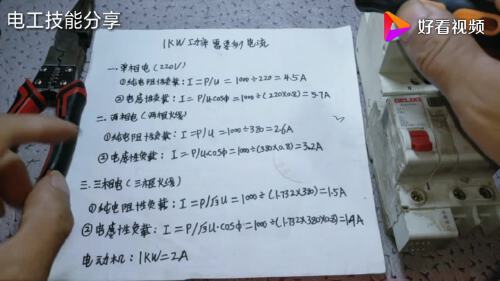 电工技能分享
好看视频
1KW功率需要多少电流
一.单相电(220V)
①纯电阻性负载:I=P/U=1000÷220=4.5A
②电感性负载:I=P/ucosφ=1000÷(220×0.8)=5.7A
二.两相电(两根火线)
①纯电阻性负载:I=P/U=1000÷380=2.6A
②电感性负载:I=P/ucosφ=1000÷(380×0.8)=3.2A
三.三相电(三根火线)
①纯电阻性负载:I=P/√3U=1000÷(1.732×380)=1.5A
②电感性负载:I=P/√3U·cosφ=1000÷(1.732×380×0.8)=1.9A
电动机:1KW=2A
DELIXI